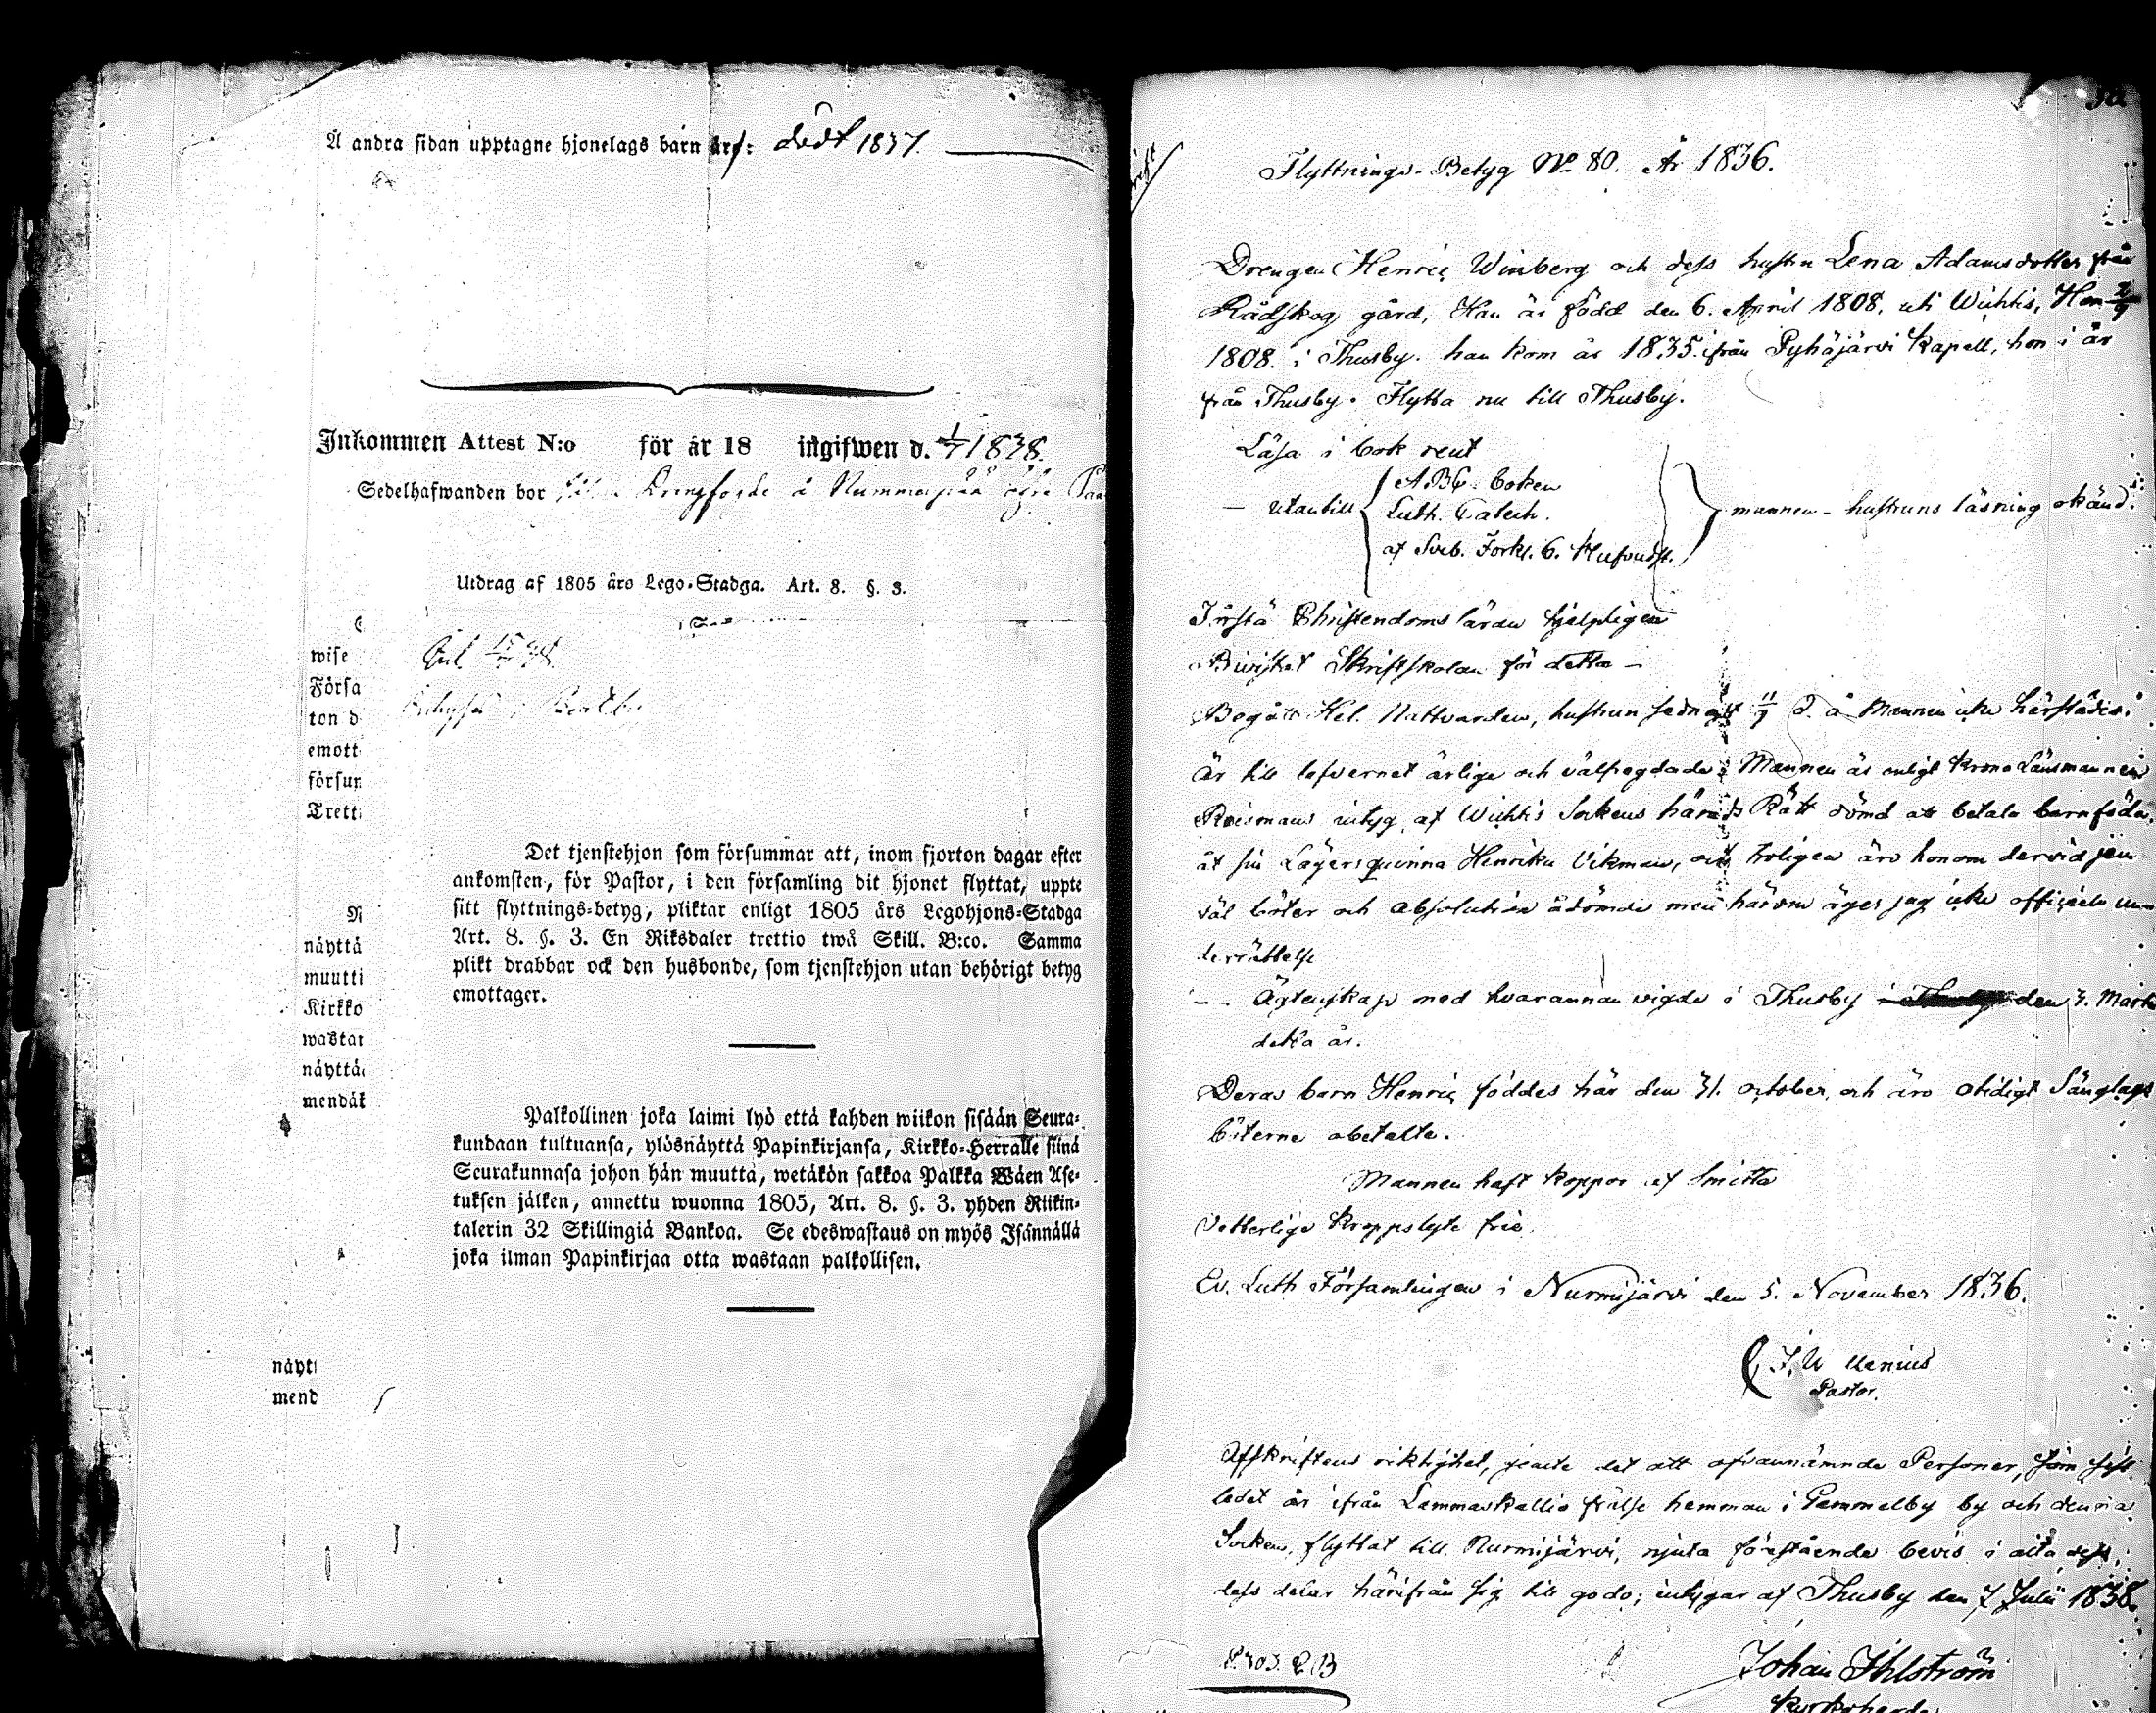 Å andra sidan upptagne hjonelags barn äro: dödt 1837.
Inkommen Attest N:o för år 18 ingifwen d. 1/7 1838.
Sedelhafwanden bor å Nummenpää
Utdrag af 1805 års Lego-Stadga. Art. 8. §. 3.
wise
Förså
ton d
emott
försur
Trett
Det tjenstehjon som försummar att, inom fjorton dagar efter
ankomsten, för Pastor, i den församling dit hjonet flyttat, uppte
sitt flyttnings-betyg, pliktar enligt 1805 års Legohjons-Stadga
Art. 8. §. 3. En Riksdaler trettio twå Skill. B:co. Samma
plikt drabbar ock den husbonde, som tjenstehjon utan behörigt betyg
emottager.
näyttä
muutti
Kirkko
wastar
näyttä
mendäk
Palkollinen joka laimi lyö että kahden wiikon sisään Seura-
kundaan tultuansa, ylösnäyttä Papinkirjansa, Kirkko-Herralle siinä
Seurakunnasa johon hän muutta, wetäkön sakkoa Palkka Wäen Ase-
tuksen jälken, annettu wuonna 1805, Art. 8. §. 3. yhden Riikin-
talerin 32 Skillingiä Bankoa. Se edeswastaus on myös Isännällä
joka ilman Papinkirjaa otta wastaan palkollisen.
näyt
mend
Flyttnings-Betyg No 80. År 1836.
Drengen Henric Winberg och dess hustru Lena Adamsdotter från
Rådskog gård, Han är född den 6. April 1808, uti Wichtis, Hon
1808. i Thusby. han kom år 1835. ifrån Pyhäjärvi Kapell, hon i år
från Thusby. Flytta nu till Thusby.
Läsa i bok rent
— utantill A.B.C. boken
Luth. Catech.
af Sveb. Förkl. 6. Hufvudst.
mannen - hustruns läsning okänd.
Förstå Christendomsläran hjelpligen
Bivistat Skriftskolan för detta —
Begått Hel. Nattvarden, hustrun sednast 11/9 d. å. Mannen icke härstädes.
Är till lefvernet ärliga och välfregdade; Mannen är enligt Krono Länsmannen
Reismans intyg, af Wichtis Sockens härads Rätt dömd att betala barnföda
åt sin Lägersqvinna Henrika Vikman, och troligen äro honom dervid jem
väl böter och absolution ådömde men härom äger jag icke officiele un
derrättelse
— Ägtenskap med hvarannan vigde i Thusby den 3. Martii
detta år.
Deras barn Henric föddes här den 31. october, och äro otidigt Sänglags
böterne obetalte.
Mannen haft koppor af Smitta
Vetterlige kroppslyte frie.
Ev. Luth Församlingen i Nurmijärvi den 5. November 1836.
Pastor.
Afskriftens riktighet, jemte det att ofvannämnde Personer, som sist
ledet år ifrån Lammaskallio frälse hemman i Gammelby by och denna
Socken, flyttat till Nurmijärvi, njuta förestående bevis i alla dess
delar härifrån sig till godo; intygar af Thusby den 7 Julii 1838.
Johan Ihlström
Kyrkoherde